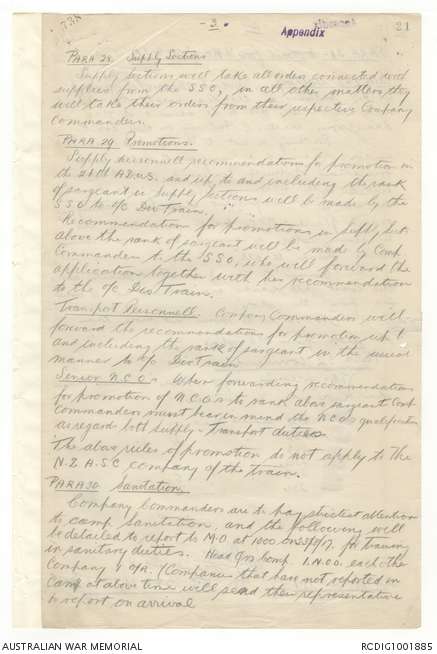 - 3 -
Appendix
21
738
PARA 28. Supply Sections
Supply sections will take all orders connected with
supplies from the SSO, in all other matters they
will take their orders from their respective Company
Commanders.
PARA 29 Promotions.
Supply personnell recommendations for promotion in
the and up to and including the rank
of sargeant in supply sections will be made by the
SSO to o/c Div Train.
Recommendations for promotions in Supply Sect
above the rank of sargeant will be made by Comp
Commanders to the SSO, who will forward the
applications together with his recommendation
to the o/c Div Train.
Transport Personnell. Company Commanders will
forward the recommendations for promotion up to
and including the rank of sargeant in the usual
manner to o/c Div Train
Senior N.C.O's. When forwarding recommendations
for promotion of N.C.O's to rank above sargeant Comp
Commanders must bear in mind the N.C.O's qualifications
as regards both supply & Transport duties
The above rules of promotion do not apply to the
N.Z.A.S.C company of the train.
PARA 30 Sanitation.
Company Commanders are to pay strictest attention
to camp sanitation, and the following will
be detailed to report to M.O. at 1000 on for training
in sanitary duties. Head Qrs Comp 1.N.C.O. each other
Company 1 O/R. Companies that have not reported in
Camp at above time will send their representative
to report on arrival
AUSTRALIAN WAR MEMORIAL
RCDIG1001885